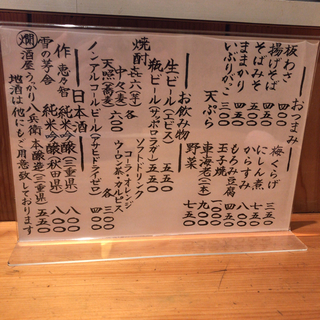 おつまみ
板わさ
揚げそば 四〇〇
そばみそ
ままかり 四五〇
いぶりがこ 三五〇
梅くらげ 三五〇
にしん煮
からすみ
もろみ豆腐 四五〇
玉子焼
天ぷら
車海老(二本) 九〇〇
野菜 七五〇
お飲み物
生ビール(エビス) 五五〇
瓶ビール(サッポロラガー) 五五〇
ソフトドリンク
コーラ・オレンジ
ウーロン茶・カルピス 各三〇〇
焼酎
㐂六(芋)
中々(麦)
天照(蕎麦) 六〇〇
ノンアルコールビール(アサヒドライゼロ)
日本酒
作 恵乃智 純米吟醸(三重県) 八〇〇
雪の茅舎 純米吟醸(秋田県) 八〇〇
燗酒屋うっかり八兵衛本醸造(三重県) 五五〇
地酒は他にもご用意致しております